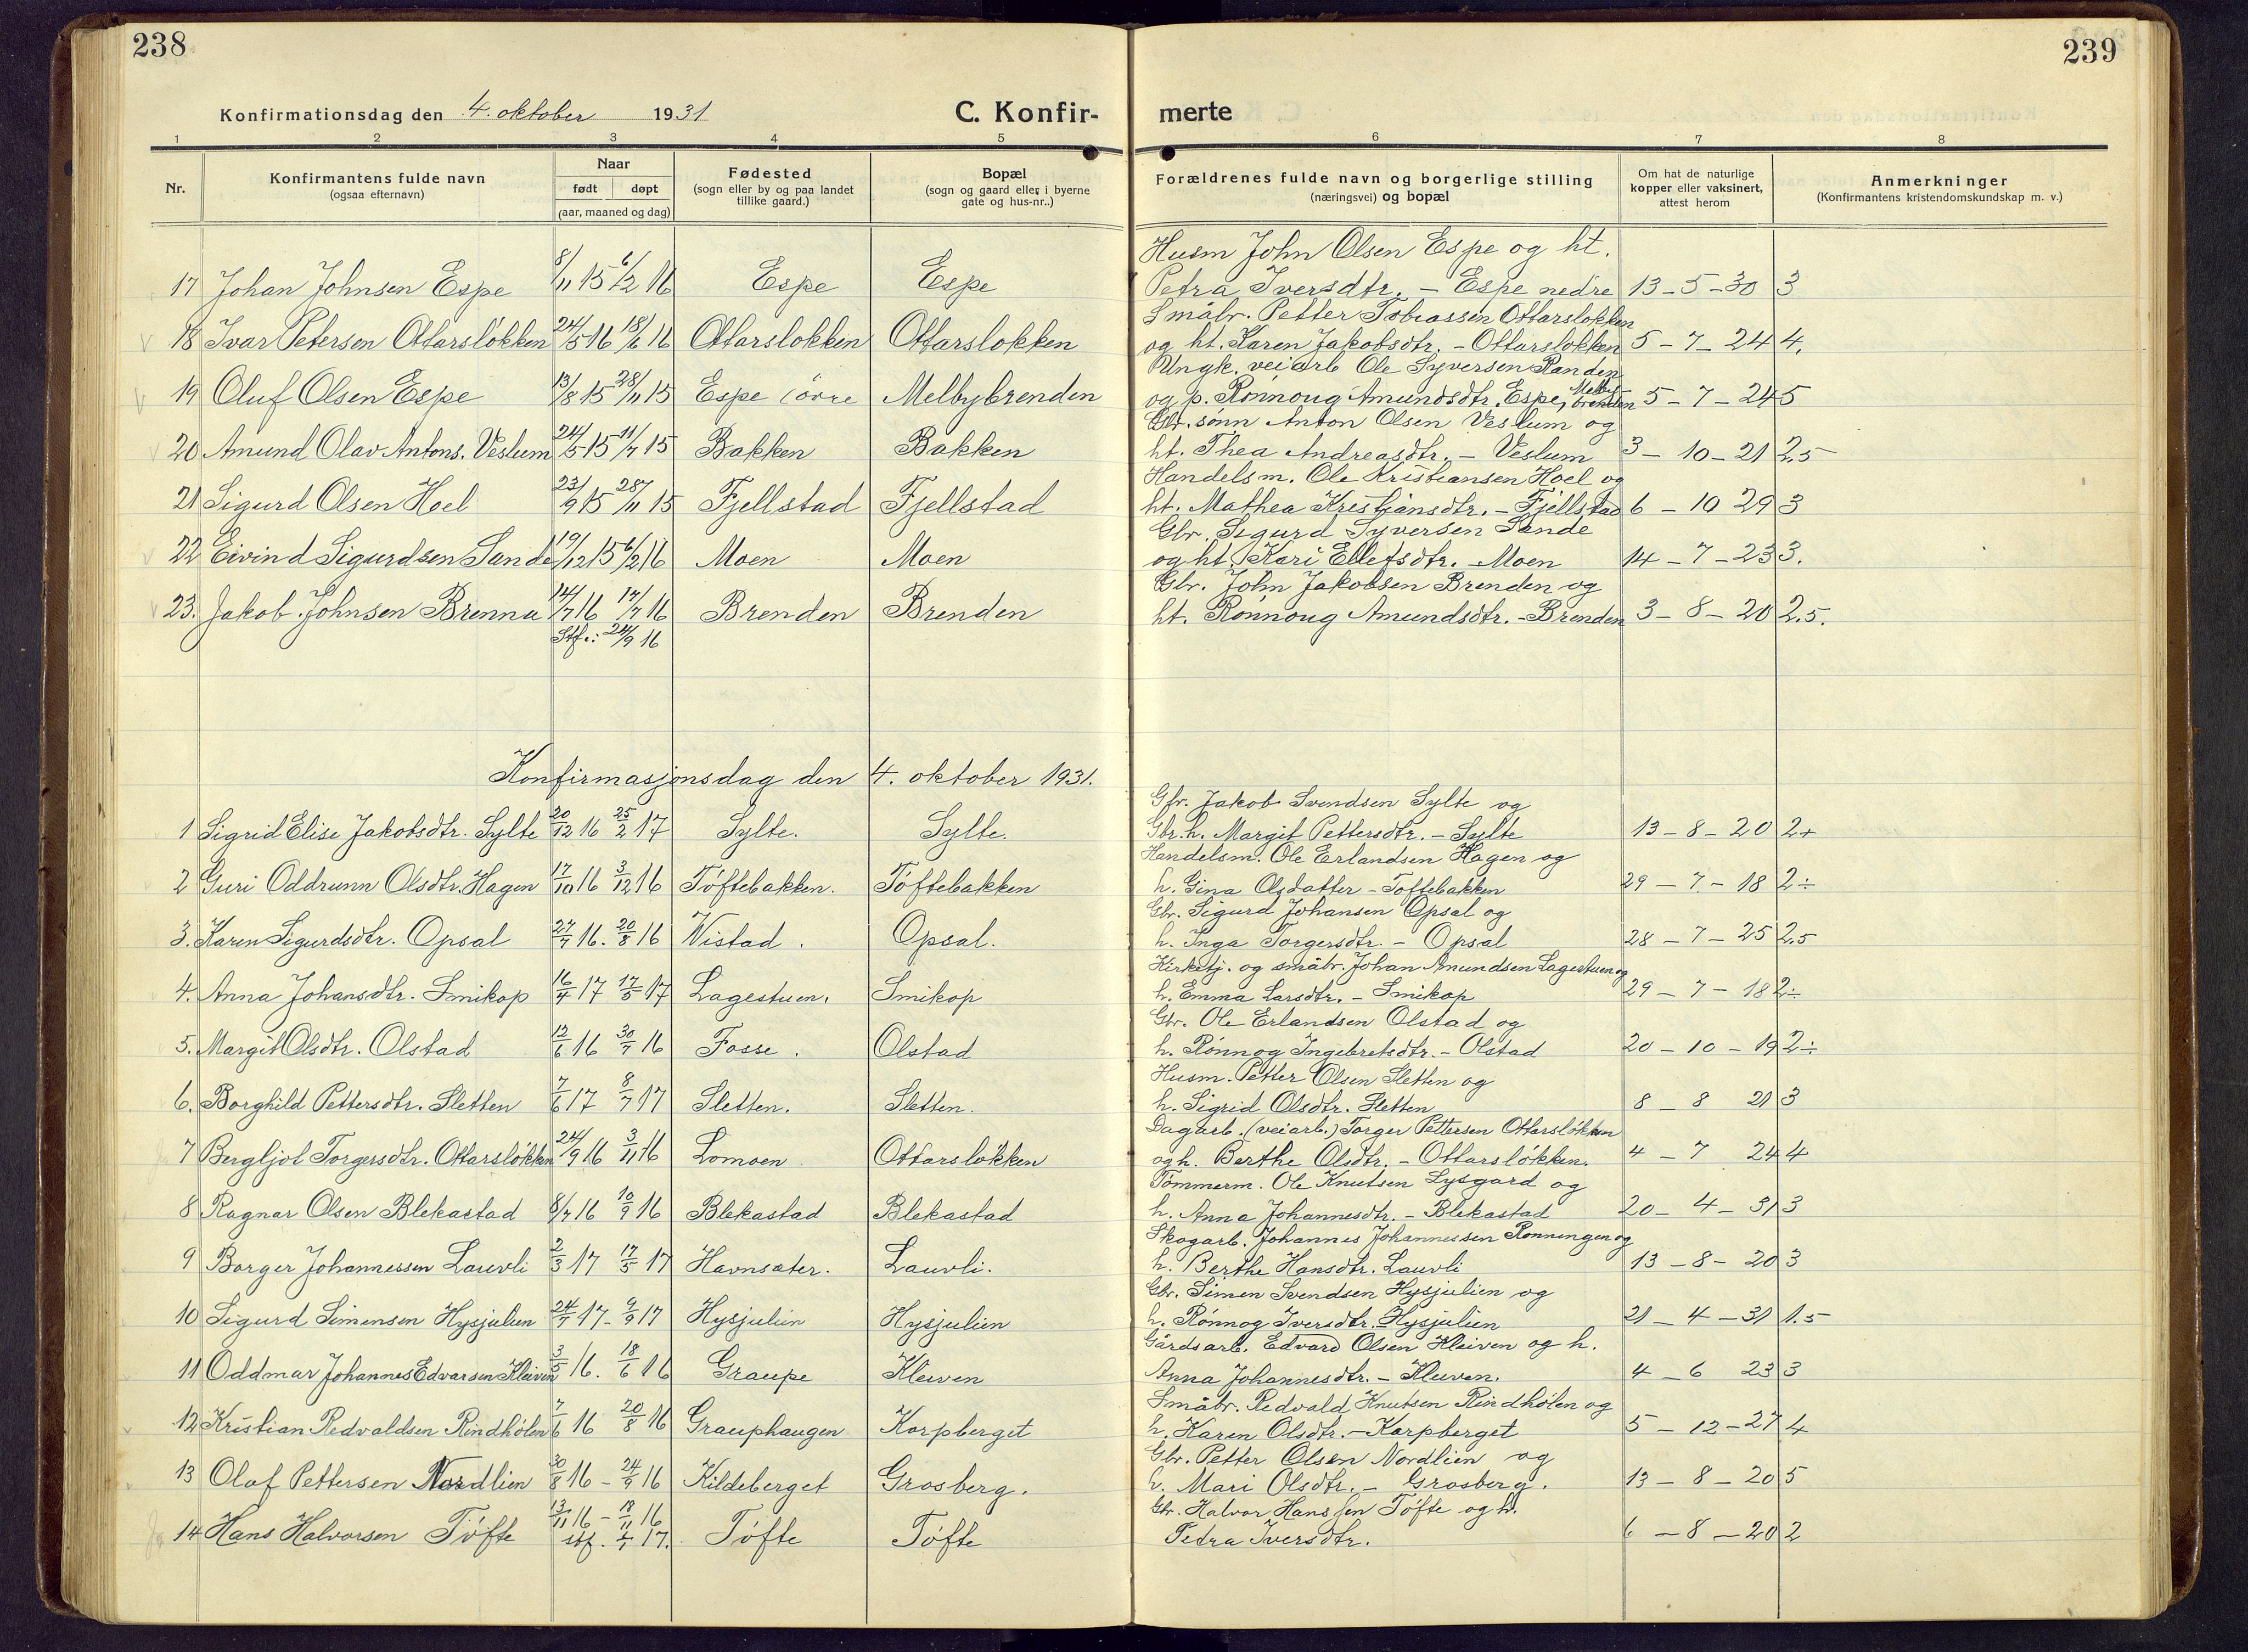 238
239
Konfirmationsdag den 4. oktober 1931
C. Konfir-
merte
1 2 3 4 5 6 7 8
Nr.
Konfirmantens fulde navn
(ogsaa efternavn)
Naar
født døpt
(aar, maaned og dag)
Fødested
(sogn eller by og paa landet
tillike gaard.)
Bopæl
(sogn og gaard eller i byerne
gate og hus-nr..)
Forældrenes fulde navn og borgerlige stilling
(næringsvei) og bopæl
Om hat de naturlige
kopper eller vaksinert,
attest herom
Anmerkninger
(Konfirmantens kristendomskundskap m. v.)
Husm John Olsen Espe og ht.
17 Johan Johnsen Espe 8/11 15 6/2 16 Espe Espe Petra Iversdtr. – Espe nedre 13-5-30 3
Småbr. Petter Tobiassen Ottarsløkken
18 Ivar Petersen Ottarsløkken 24/5 16 18/6 16 Ottarsløkken Ottarsløkken og ht. Karen Jakobsdtr. – Ottarsløkken 5-7-24 4.
Ungk. veiarb Ole Syversen Randen
19 Oluf Olsen Espe 13/8 15 28/11 15 Espe övre Melbybrenden og p. Rönnoug Amundsdtr. Espe, Melbybrenden 5-7-24 5
Gbr. sönn Anton Olsen Veslum og
20 Amund Olav Antons. Veslum 24/5 15 11/7 15 Bakken Bakken ht. Thea Andreasdtr. – Veslum 3-10-21 2.5
Handelsm. Ole Kristiansen Hoel og
21 Sigurd Olsen Hoel 23/9 15 28/11 15 Fjellstad Fjellstad ht. Mathea Kristiansdtr. – Fjellstad 6-10 29 3
Gbr. Sigurd Syversen Sande
22 Eivind Sigurdsen Sande 19/12 15 6/2 16 Moen Moen og ht. Kari Ellefsdtr. – Moen 14-7-23 3.
Gbr. John Jakobsen Brenden og
23. Jakob Johnsen Brenna 14/7 16 17/7 16 Brenden Brenden ht. Rönnoug Amundsdtr. – Brenden 3-8-20 2.5.
Stf.: 24/9 16
Konfirmasjonsdag den 4. oktober 1931.
Gfr. Jakob Svendsen Sylte og
1 Sigrid Elise Jakobsdtr. Sylte 20/12 16 25/2 17 Sylte. Sylte. Gbr. h. Margit Pettersdtr. – Sylte 13-8-20 2+
Handelsm. Ole Erlandsen Hagen og
2 Guri Oddrunn Olsdtr. Hagen 17/10 16 3/12 16 Töftebakken. Töftebakken h. Gina Olsdatter – Toftebakken 29-7-18 2÷
Gbr. Sigurd Johansen Opsal og
3. Karen Sigurdsdtr. Opsal 27/7 16. 20/8 16 Vistad. Opsal. h. Inga Torgersdtr. – Opsal 28-7-25 2.5
Kirketj. og småbr. Johan Amundsen Lagestuen og
4. Anna Johansdtr. Smikop 16/4 17 17/5 17 Lagestuen. Smikop h. Emma Larsdtr. – Smikop 29-7-18 2÷
Gbr. Ole Erlandsen Olstad og
5. Margit Olsdtr. Olstad 12/6 16 30/7 16 Fosse. Olstad h. Rönnog Ingebretsdtr. – Olstad 20-10-19 2÷
Husm. Petter Olsen Sletten og
6. Borghild Pettersdtr. Sletten 7/6 17 8/7 17 Sletten. Sletten. h. Sigrid Olsdtr. Sletten 8-8 21 3
Dagarb. (veiarb.) Torger Pettersen Ottarsløkken
7 Bergljot Torgersdtr. Ottarsløkken 24/9 16 3/11 16 Lomoen Ottarsløkken og h. Berthe Olsdtr. – Ottarsløkken. 4-7 24 4
Tömmerm. Ole Knutsen Lysgard og
8 Ragnar Olsen Blekastad 8/7 16 10/9 16 Blekastad Blekastad h. Anna Johannesdtr. – Blekastad 20-4-31 3
Skogarb. Johannes Johannessen Rønningen og
9 Borger Johannessen Lauvli 2/3 17 17/5 17 Havnsæter. Lauvli. h. Berthe Hansdtr. Lauvli 13-8-20 3
Gbr. Simen Svendsen Hysjulien og
10 Sigurd Simensen Hysjulien 24/7 17- 9/9 17 Hysjulien Hysjulien h. Rönnog Iversdtr. Hysjulien 21-4-31 1.5
Gårdsarb. Edvard Olsen Kleiven og h.
11 Oddmar Johannes Edvarsen Kleiven 3/5 16. 18/6 16 Graupe Kleiven Anna Johannesdtr. – Kleiven. 4-6 23 3
Småbr. Redvald Knutsen Rindhölen og
12 Kristian Redvaldsen Rindhölen 7/6 16 20/8 16 Grauphaugen Korpberget h. Karen Olsdtr. – Korpberget 5-12-27 4
Gbr. Petter Olsen Nordlien og
13 Olaf Pettersen Nordlien 30/8 16 – 24/9 16 Kildeberget Grosberg. h. Mari Olsdtr. – Grosberg. 13-8-20 5
Gbr. Halvor Hanssen Töfte og h.
14 Hans Halvorsen Töfte 13/11 16 – 18/11 16 Töfte Töfte Petra Iversdtr. 6-8-20 2
stf. 17.